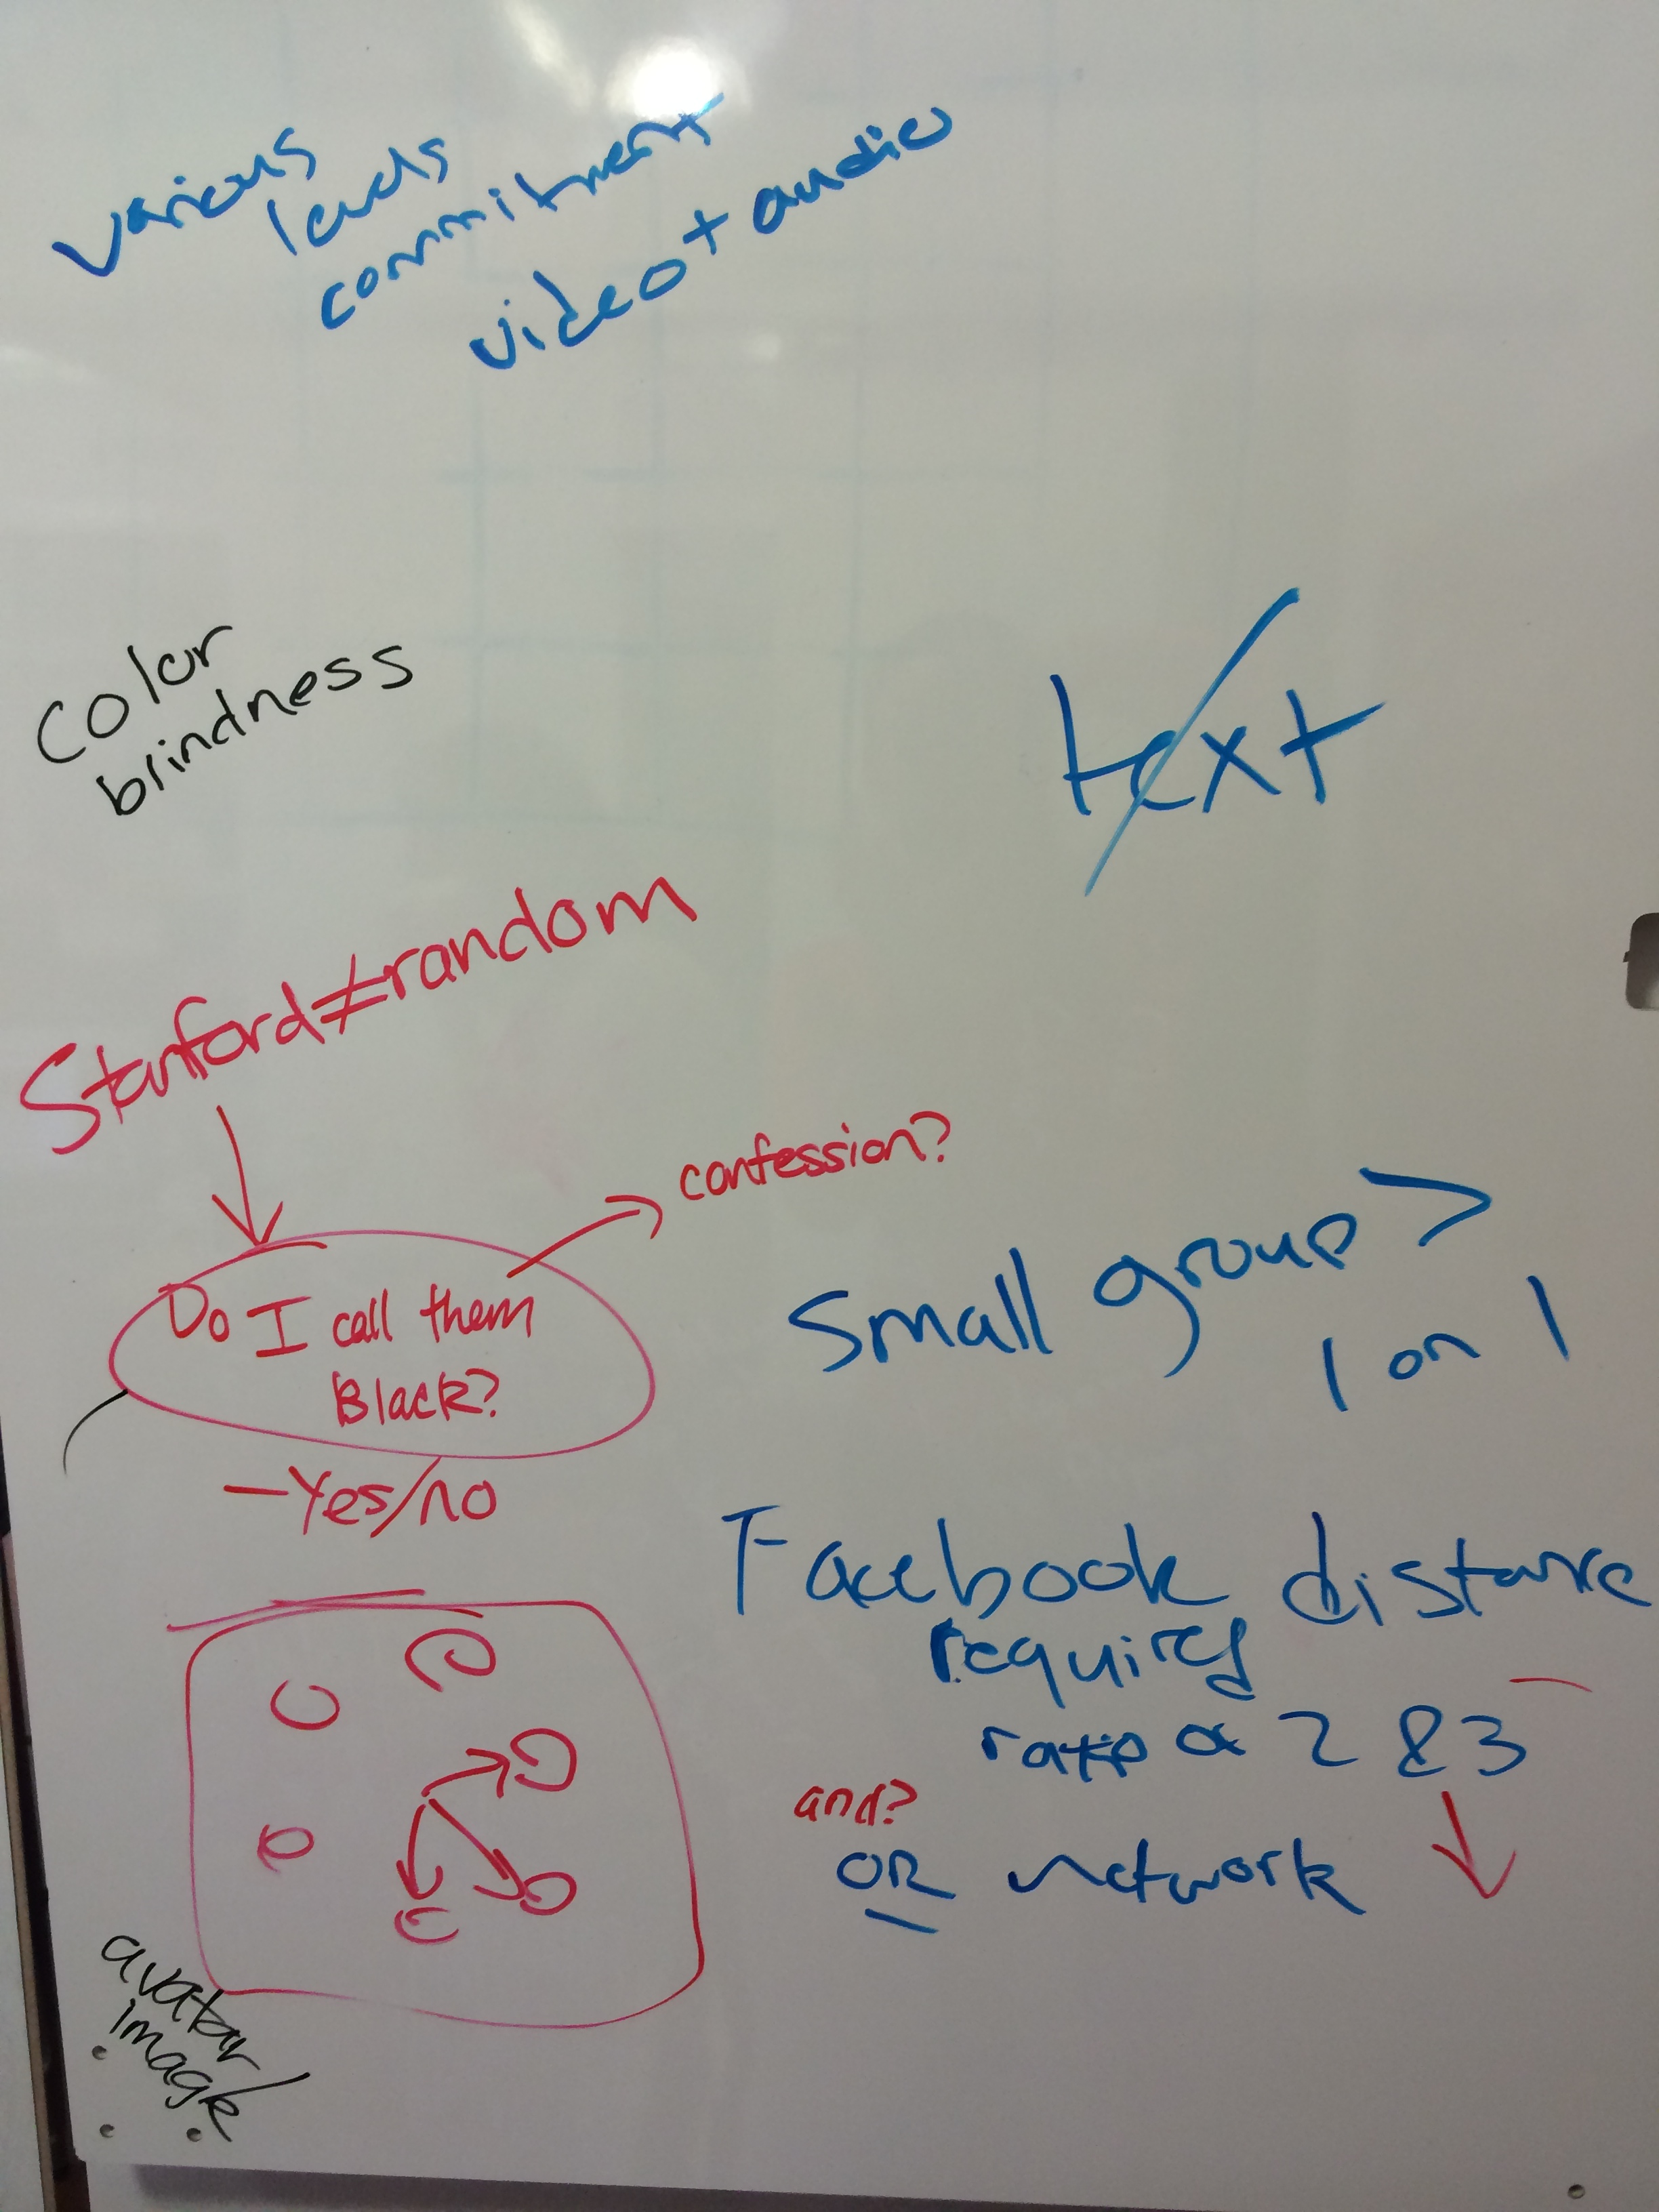 various
levels
commitment
video + audio
color
blindness
text
Stanford ≠ random
confession?
Do I call them
Black?
- Yes/no
Small group >
1 on 1
Facebook distance
ratio ∝ 2 & 3
and?
OR network
avatar
image